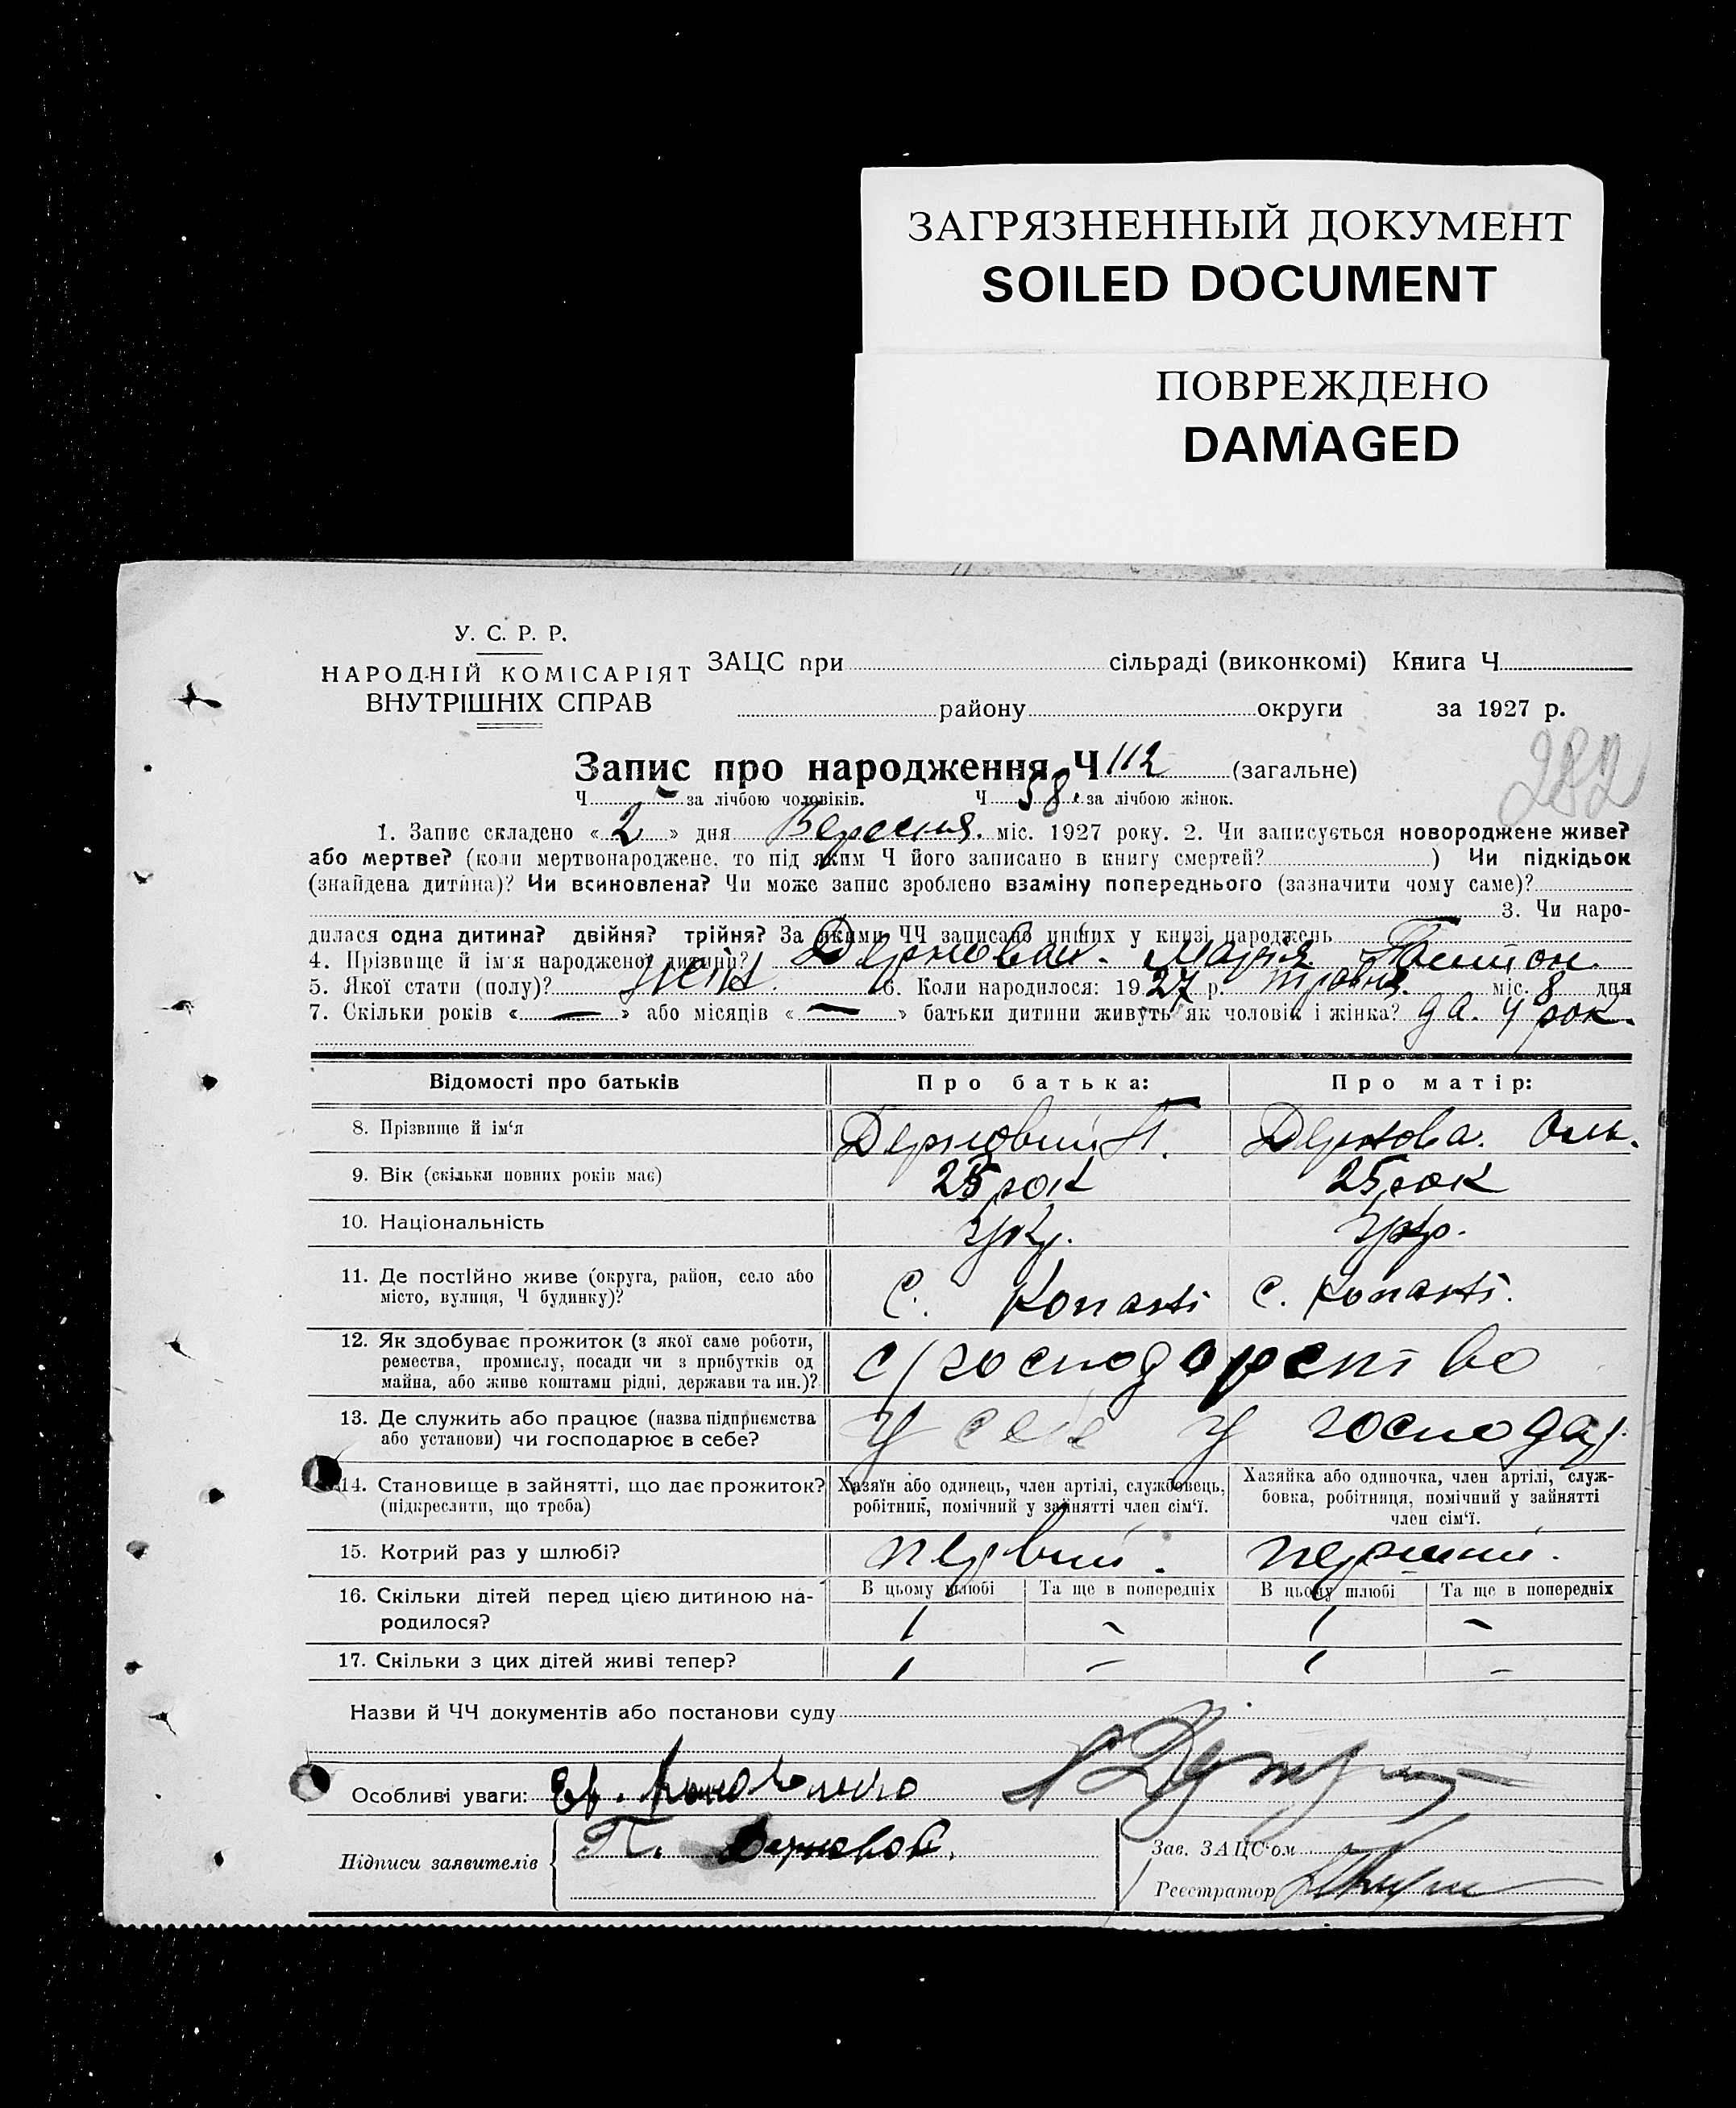 ЗАГРЯЗНЕННЫЙ ДОКУМЕНТ
SOILED DOCUMENT
ПОВРЕЖДЕНО
DAMAGED
У. С. Р. Р.
НАРОДНІЙ КОМІСАРІЯТ
ВНУТРІШНІХ СПРАВ
ЗАЦС при сільраді (виконкомі) Книга Ч
району округи за 1927 р.
282
Запис про народження Ч 112 (загальне)
Ч за лічбою чоловіків. Ч 58. за лічбою жінок.
1. Запис складено « 2 » дня Вересня. міс. 1927 року. 2. Чи записується новороджене живе?
або мертве? (коли мертвонароджене, то під яким Ч його записано в книгу смертей? ) Чи підкідьок
(знайдена дитина)? Чи всиновлена? Чи може запис зроблено взаміну попереднього (зазначити чому саме)?
3. Чи наро-
дилася одна дитина? двійня? трійня? За якими ЧЧ записано инших у книзі народжень
4. Прізвище й ім'я народженої дитини? Марія
5. Якої стати (полу)? жін. 6. Коли народилося: 1927 р. травня. міс. 8 дня
7. Скільки років « — » або місяців « — » батьки дитини живуть як чоловік і жінка? да. 4 рок.
Відомості про батьків Про батька: Про матір:
8. Прізвище й ім'я
9. Вік (скільки повних років має) 25 рок 25 рок
10. Національність укр. укр.
11. Де постійно живе (округа, район, село або
місто, вулиця, Ч будинку)? с. с.
12. Як здобуває прожиток (з якої саме роботи,
ремества, промислу, посади чи з прибутків од
майна, або живе коштами рідні, держави та ин.)? с/господарство
13. Де служить або працює (назва підприємства
або установи) чи господарює в себе? У себе у господар.
14. Становище в зайнятті, що дає прожиток?
(підкреслити, що треба)
Хазяїн або одинець, член артілі, службовець,
робітник, помічний у зайнятті член сім'ї.
Хазяйка або одиночка, член артілі, служ-
бовка, робітниця, помічний у зайнятті
член сім'ї.
15. Котрий раз у шлюбі? первий. перший.
16. Скільки дітей перед цією дитиною на-
родилося?
В цьому шлюбі Та ще в попередніх В цьому шлюбі Та ще в попередніх
1 - 1 -
17. Скільки з цих дітей живі тепер? 1 - 1 -
Назви й ЧЧ документів або постанови суду
Особливі уваги:
Підписи заявителів П.
Зав. ЗАЦС'ом
Реєстратор